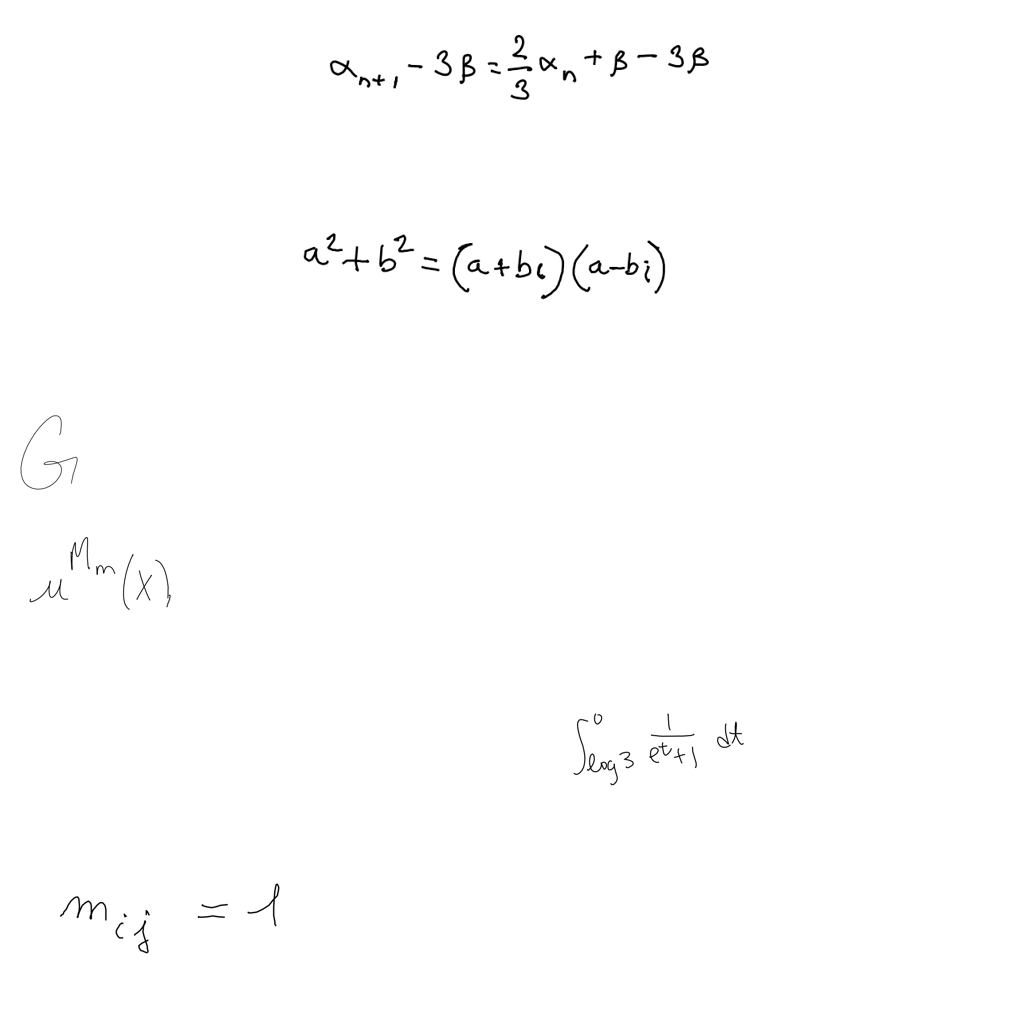 α_{n+1} - 3β = \frac{2}{3} α_n + β - 3β
a^2 + b^2 = (a + bi)(a - bi)
G
μ^{M_m}(X),
\int_{\log 3}^{0} \frac{1}{e^t + 1} dt
m_{ij} = 1